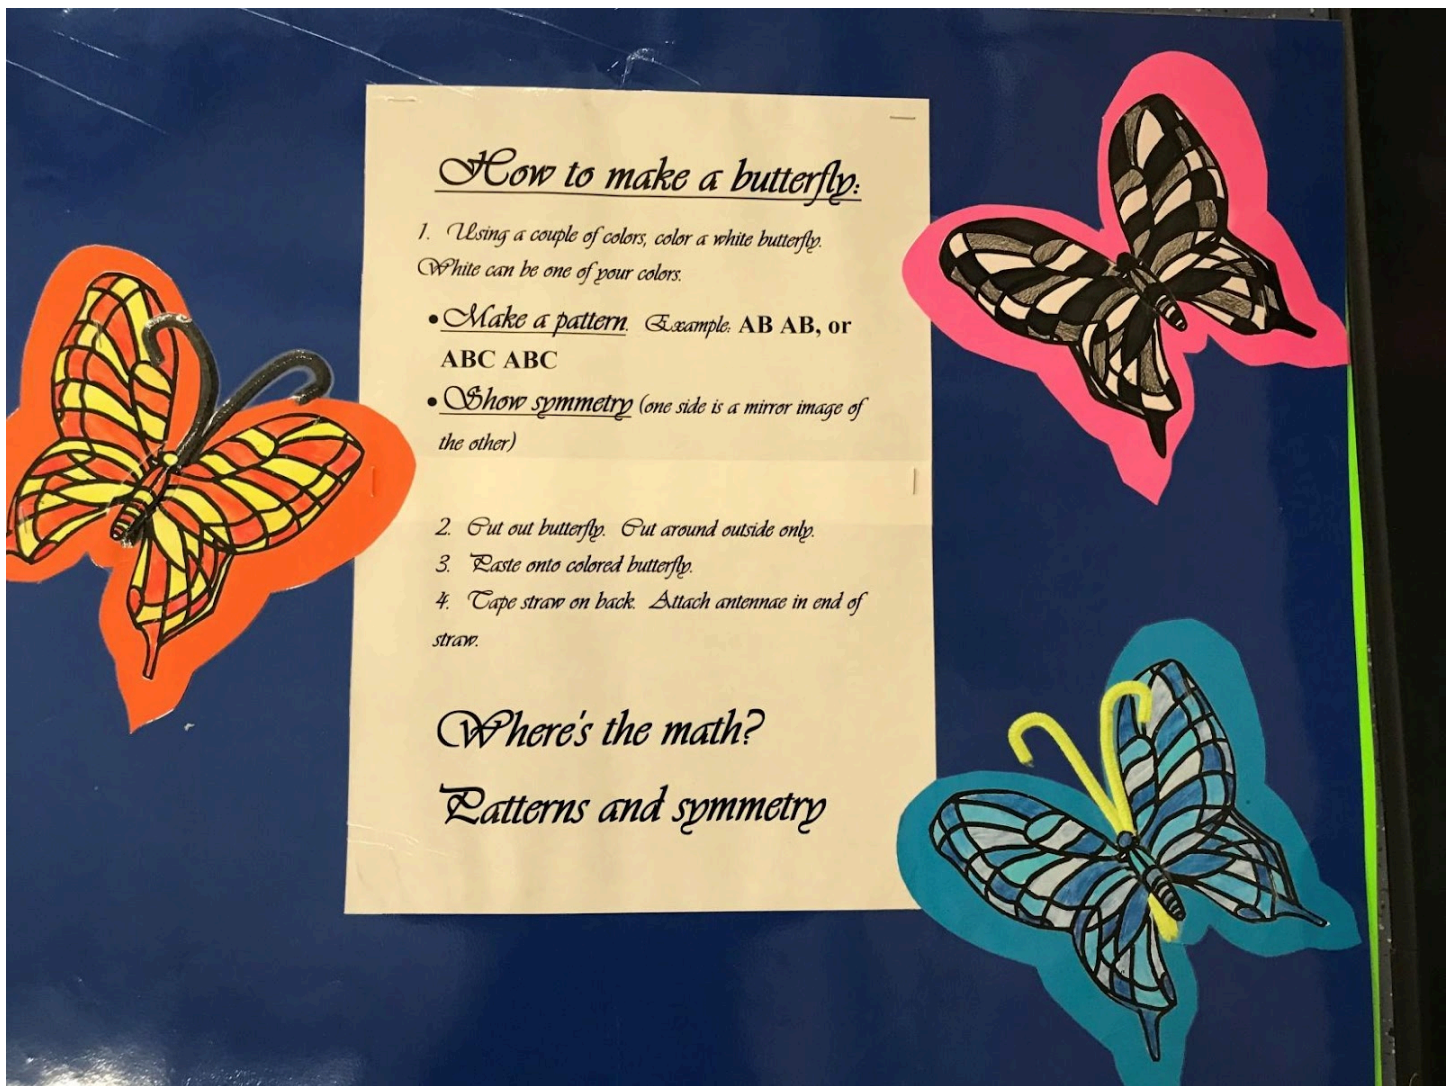 How to make a butterfly:
1. Using a couple of colors, color a white butterfly.
White can be one of your colors.
• Make a pattern. Example: AB AB, or
ABC ABC
• Show symmetry (one side is a mirror image of
the other)
2. Cut out butterfly. Cut around outside only.
3. Paste onto colored butterfly.
4. Tape straw on back. Attach antennae in end of
straw.
Where's the math?
Patterns and symmetry